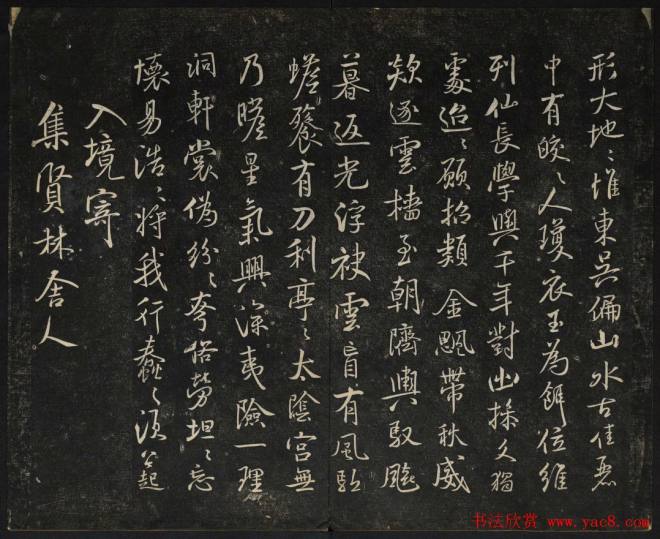 形大地〻堆東吳偏山水古佳麗
中有皎〻人瓊衣玉為餌位維
列仙長學與千年對幽操久獨
處迢〻願招類金飔帶秋威
欻逐雲檣至朝隮輿馭飈
暮返光浮袂雲盲有風驅
蟾餮有刀利亭〻太陰宮無
乃瞻星氣興深夷險一理
洞軒裳偽紛〻夸俗勞坦〻忘
懷易浩〻將我行蠢〻須公起
入境寄
集賢林舍人
书法欣赏 www.yac8.com